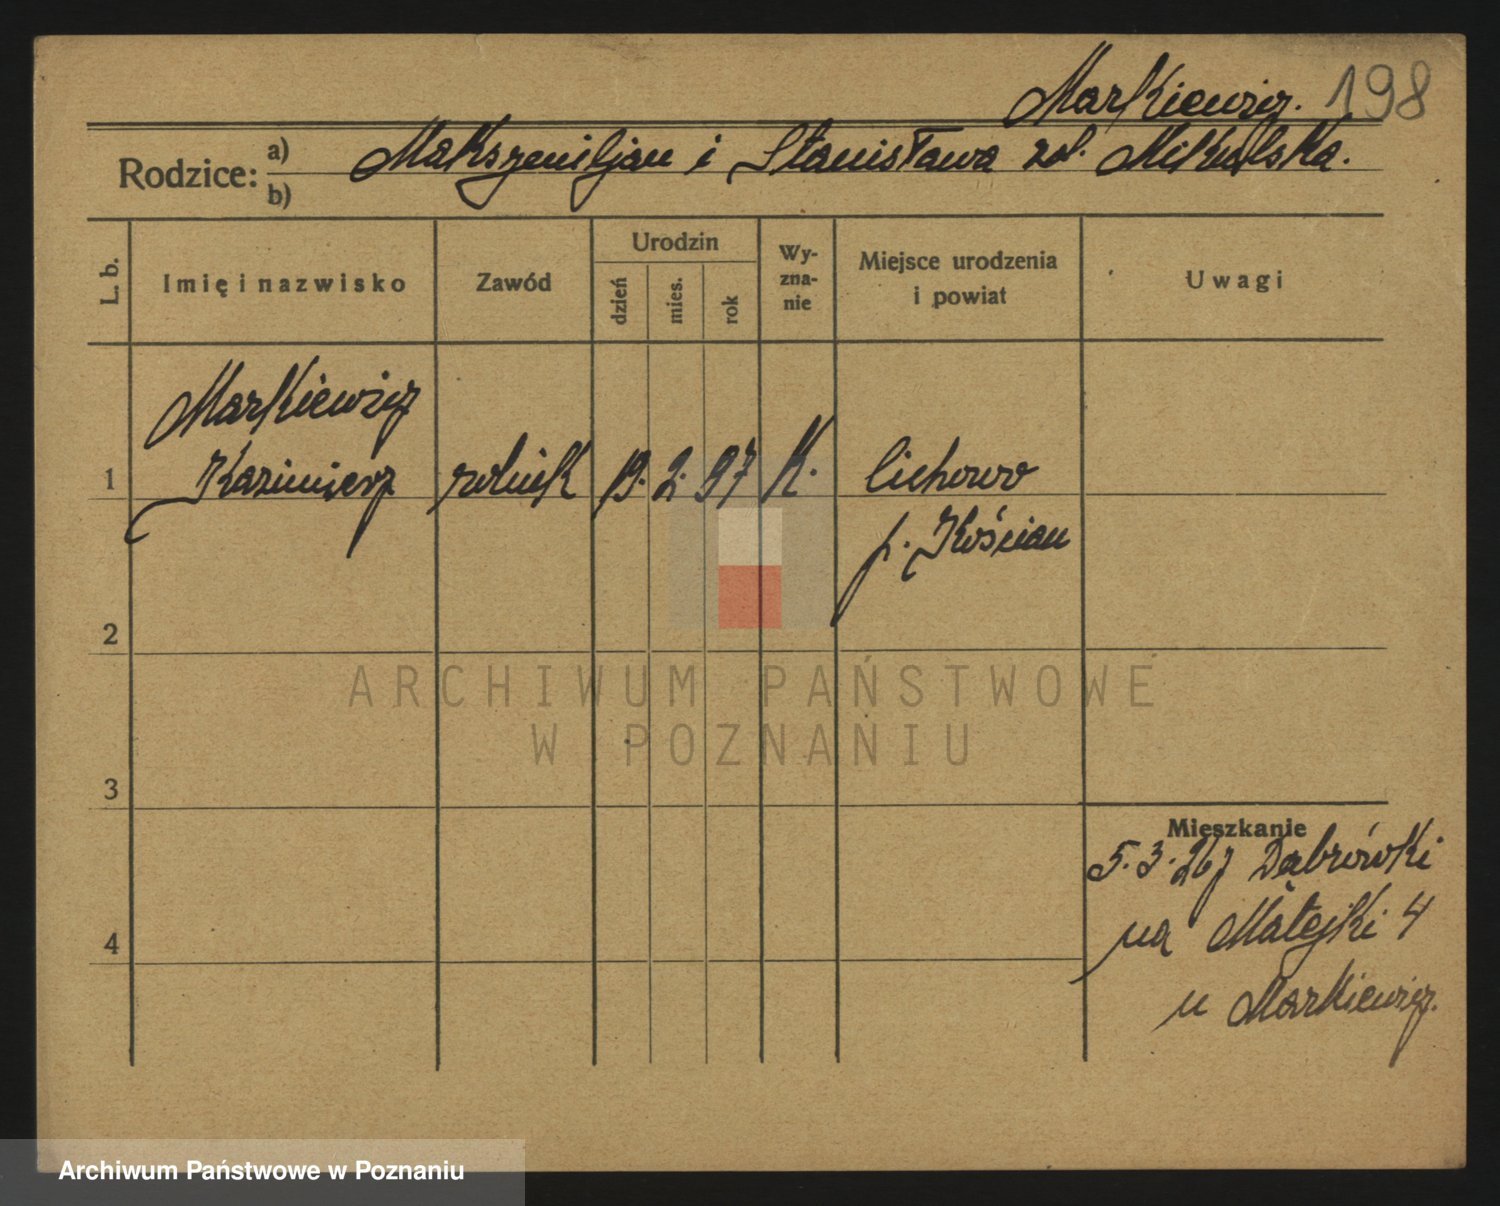 Markiewicz. 198
Rodzice: a) Makszemiljan i Stanisława zd. Mikulska.
b)
L. b. Imię i nazwisko Zawód Urodzin dzień mies. rok Wy-
zna-
nie Miejsce urodzenia
i powiat Uwagi
Markiewicz
1 Kazimierz rolnik 19. 2. 97 K. Cichowo
p. Kościan
2
ARCHIWUM PAŃSTWOWE
W POZNANIU
3
Mieszkanie
5. 3. 26 z Dąbrówki
4 na Matejki 4
u Markiewicz.
Archiwum Państwowe w Poznaniu